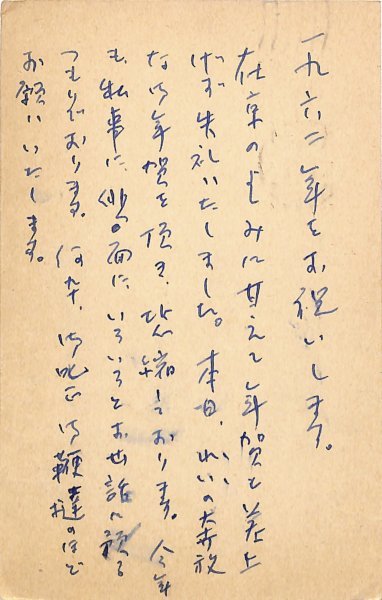 一九六二年をお祝いします。
在京のよしみに甘えて年賀を差上
げず失礼いたしました。本日、れいの奔放
な御年賀を頂き、恐縮しております。今年
も、私事に、の面に、いろいろとお世話に預る
つもりでおります。何卒、御叱正御鞭撻のほど
お願いいたします。